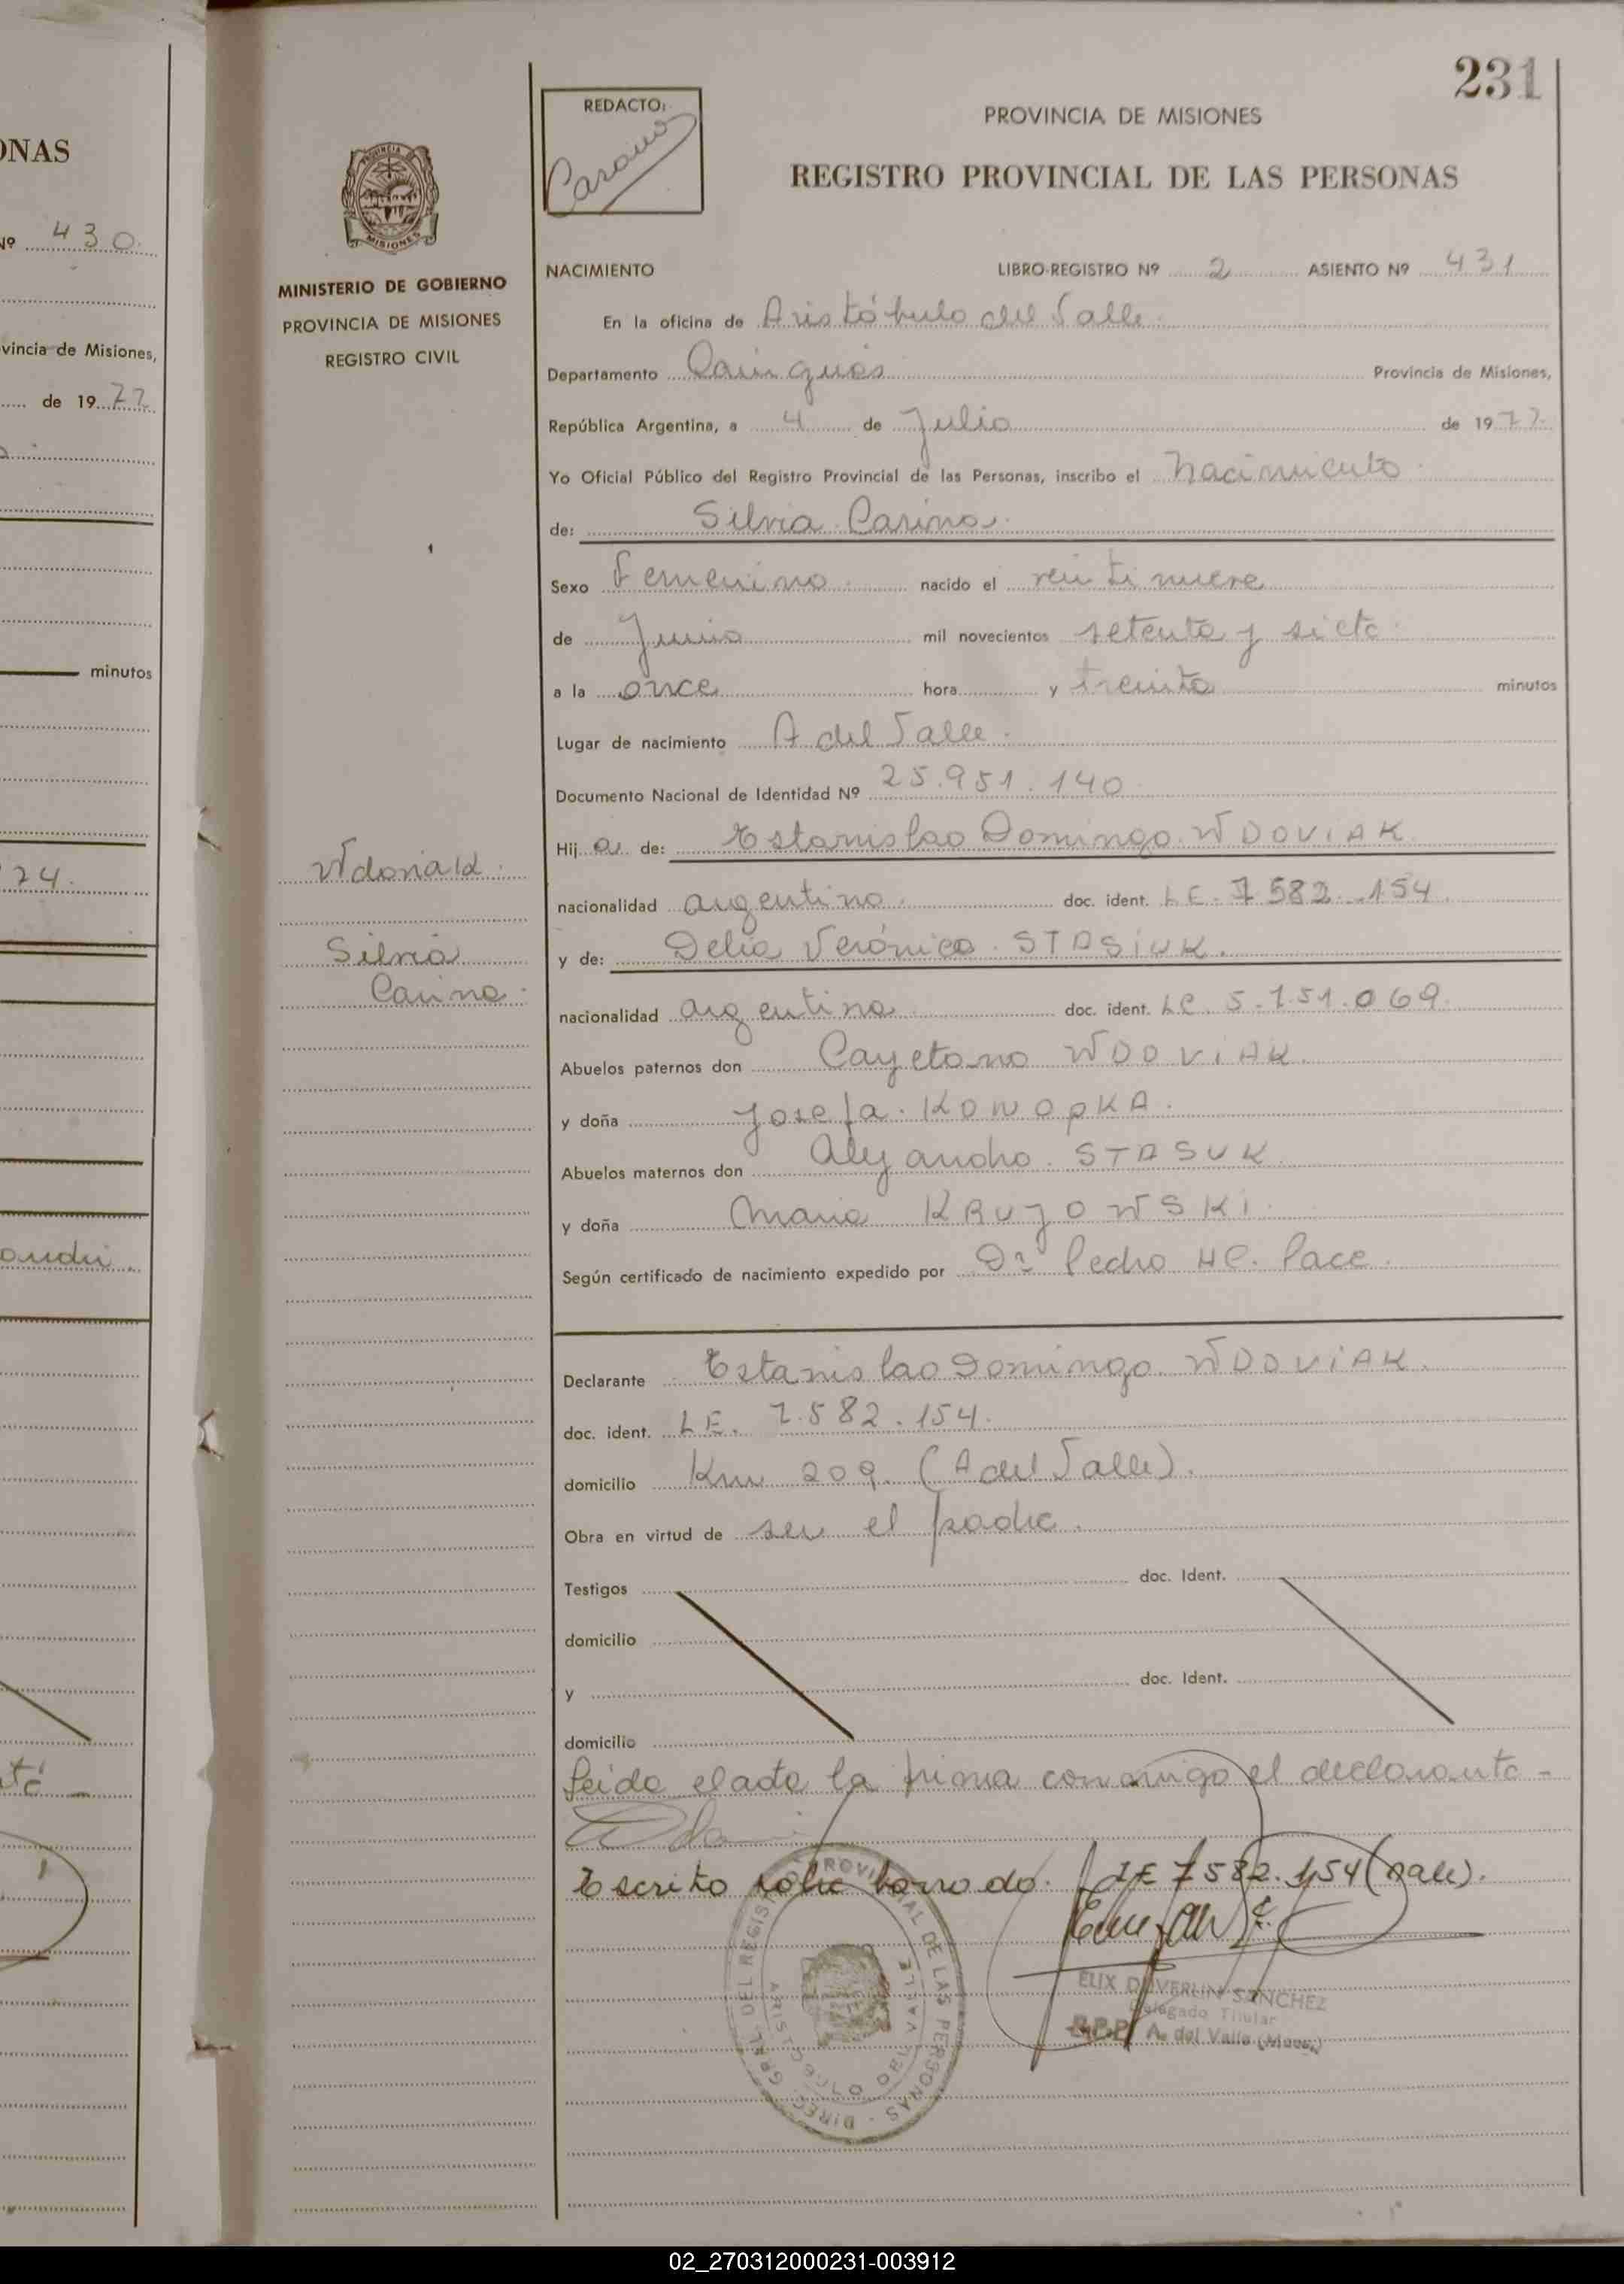 ONAS
Nº 430
vincia de Misiones,
de 1977
minutos
24.
231
REDACTO:
PROVINCIA DE MISIONES
REGISTRO PROVINCIAL DE LAS PERSONAS
PROVINCIA
MISIONES
MINISTERIO DE GOBIERNO
PROVINCIA DE MISIONES
REGISTRO CIVIL
Wdoviak
Silvia
Carina
NACIMIENTO LIBRO-REGISTRO Nº 2 ASIENTO Nº 431
En la oficina de Aristóbulo del Valle
Departamento Cainguás Provincia de Misiones,
República Argentina, a 4 de Julio de 1977
Yo Oficial Público del Registro Provincial de las Personas, inscribo el Nacimiento
de: Silvia Carina
Sexo Femenino nacido el veintinueve
de Junio mil novecientos setenta y siete
a la once hora y treinta minutos
Lugar de nacimiento A del Valle
Documento Nacional de Identidad Nº 25.951.140
Hij a de: Estanislao Domingo WDOVIAK
nacionalidad argentino doc. ident. LE. 7582.154
y de: Delia Verónica STASIUK.
nacionalidad argentina doc. ident. LC. 5.751.069
Abuelos paternos don Cayetano WDOVIAK.
y doña Josefa KONOPKA.
Abuelos maternos don Alejandro STASUK
y doña Maria KRUJOWSKI
Según certificado de nacimiento expedido por Dr Pedro HC. Pace.
Declarante Estanislao Domingo WDOVIAK.
doc. ident. LE. 7.582.154.
domicilio Km 209. (A del Valle).
Obra en virtud de ser el padre.
Testigos doc. Ident.
domicilio
y doc. Ident.
domicilio
Leida el acta la firma conmigo el declarante -
Escrito sobre borrado. LE 7582.154 (vale).
DIREC. GRAL. DEL REGISTRO PROVINCIAL DE LAS PERSONAS
ARISTOBULO DEL VALLE
ELIX DUVERLIN SANCHEZ
Delegado Titular
A. del Valle (Mnes.)
02_270312000231-003912